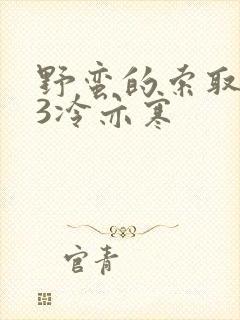 野蛮的索取
3冷亦寒
官青